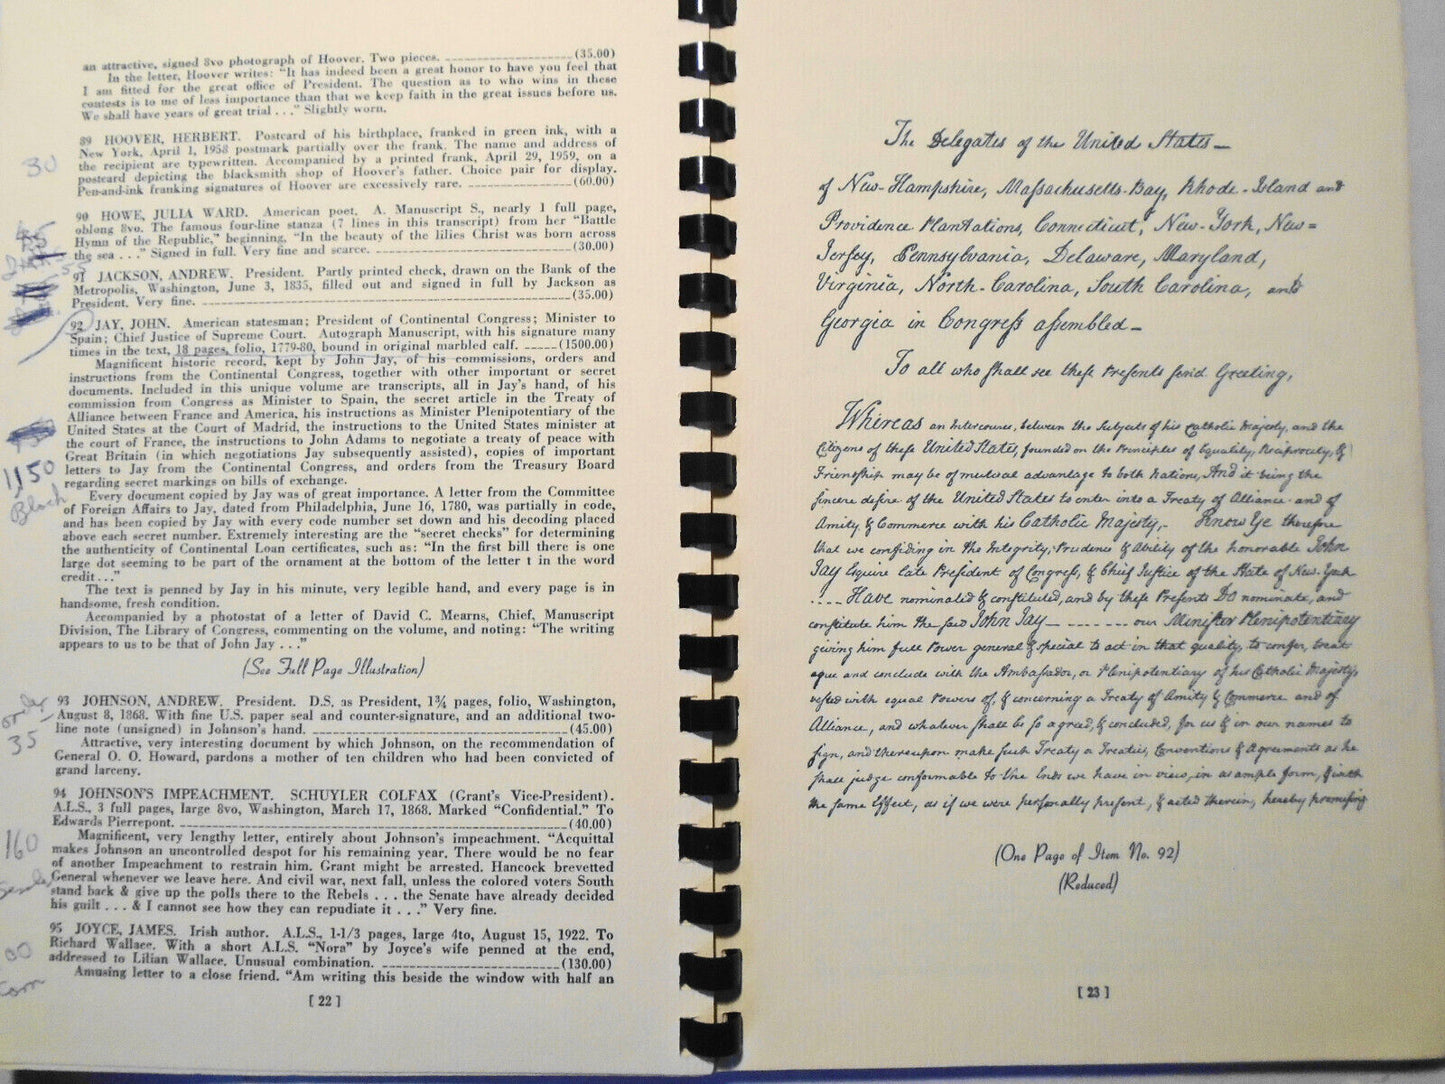 an attractive, signed 8vo photograph of Hoover. Two pieces. (35.00)
In the letter, Hoover writes: “It has indeed been a great honor to have you feel that
I am fitted for the great office of President. The question as to who wins in these
contests is to me of less importance than that we keep faith in the great issues before us.
We shall have years of great trial . . .” Slightly worn.
89 HOOVER, HERBERT. Postcard of his birthplace, franked in green ink, with a
New York, April 1, 1958 postmark partially over the frank. The name and address of
the recipient are typewritten. Accompanied by a printed frank, April 29, 1959, on a
postcard depicting the blacksmith shop of Hoover's father. Choice pair for display.
Pen-and-ink franking signatures of Hoover are excessively rare. (60.00)
30
90 HOWE, JULIA WARD. American poet. A. Manuscript S., nearly 1 full page,
oblong 8vo. The famous four-line stanza (7 lines in this transcript) from her “Battle
Hymn of the Republic,” beginning, “In the beauty of the lilies Christ was born across
the sea . . .” Signed in full. Very fine and scarce. (30.00)
91 JACKSON, ANDREW. President. Partly printed check, drawn on the Bank of the
Metropolis, Washington, June 3, 1835, filled out and signed in full by Jackson as
President. Very fine. (35.00)
92 JAY, JOHN. American statesman; President of Continental Congress; Minister to
Spain; Chief Justice of Supreme Court. Autograph Manuscript, with his signature many
times in the text, 18 pages, folio, 1779-80, bound in original marbled calf. (1500.00)
Magnificent historic record, kept by John Jay, of his commissions, orders and
instructions from the Continental Congress, together with other important or secret
documents. Included in this unique volume are transcripts, all in Jay's hand, of his
commission from Congress as Minister to Spain, the secret article in the Treaty of
Alliance between France and America, his instructions as Minister Plenipotentiary of the
United States at the Court of Madrid, the instructions to the United States minister at
the court of France, the instructions to John Adams to negotiate a treaty of peace with
Great Britain (in which negotiations Jay subsequently assisted), copies of important
letters to Jay from the Continental Congress, and orders from the Treasury Board
regarding secret markings on bills of exchange.
1150
Bloch
Every document copied by Jay was of great importance. A letter from the Committee
of Foreign Affairs to Jay, dated from Philadelphia, June 16, 1780, was partially in code,
and has been copied by Jay with every code number set down and his decoding placed
above each secret number. Extremely interesting are the “secret checks” for determining
the authenticity of Continental Loan certificates, such as: “In the first bill there is one
large dot seeming to be part of the ornament at the bottom of the letter t in the word
credit . . .”
The text is penned by Jay in his minute, very legible hand, and every page is in
handsome, fresh condition.
Accompanied by a photostat of a letter of David C. Mearns, Chief, Manuscript
Division, The Library of Congress, commenting on the volume, and noting: “The writing
appears to us to be that of John Jay . . .”
(See Full Page Illustration)
93 JOHNSON, ANDREW. President. D.S. as President, 1¾ pages, folio, Washington,
August 8, 1868. With fine U.S. paper seal and counter-signature, and an additional two-
line note (unsigned) in Johnson's hand. (45.00)
order
35
Attractive, very interesting document by which Johnson, on the recommendation of
General O. O. Howard, pardons a mother of ten children who had been convicted of
grand larceny.
94 JOHNSON'S IMPEACHMENT. SCHUYLER COLFAX (Grant's Vice-President).
A.L.S., 3 full pages, large 8vo, Washington, March 17, 1868. Marked “Confidential.” To
Edwards Pierrepont. (40.00)
160
Magnificent, very lengthy letter, entirely about Johnson's impeachment. “Acquittal
makes Johnson an uncontrolled despot for his remaining year. There would be no fear
of another Impeachment to restrain him. Grant might be arrested. Hancock brevetted
General whenever we leave here. And civil war, next fall, unless the colored voters South
stand back & give up the polls there to the Rebels . . . the Senate have already decided
his guilt . . . & I cannot see how they can repudiate it . . .” Very fine.
95 JOYCE, JAMES. Irish author. A.L.S., 1-1/3 pages, large 4to, August 15, 1922. To
Richard Wallace. With a short A.L.S. “Nora” by Joyce's wife penned at the end,
addressed to Lilian Wallace. Unusual combination. (130.00)
Amusing letter to a close friend. “Am writing this beside the window with half an
[ 22 ]
The Delegates of the United States—
of New-Hampshire, Massachusetts-Bay, Rhode-Island and
Providence Plantations, Connecticut, New-York, New=
Jersey, Pennsylvania, Delaware, Maryland,
Virginia, North-Carolina, South Carolina, and
Georgia in Congress assembled—
To all who shall see these Presents send Greeting,
Whereas an Intercourse, between the Subjects of his Catholic Majesty, and the
Citizens of these United States, founded on the Principles of Equality, Reciprocity, &
Friendship may be of mutual advantage to both Nations, And it being the
sincere desire of the United States to enter into a Treaty of Alliance and of
Amity & Commerce with his Catholic Majesty,- Know Ye therefore
that we confiding in the Integrity, Prudence & Ability of the honorable John
Jay Esquire late President of Congress, & Chief Justice of the State of New-York
.... Have nominated & constituted, and by these Presents Do nominate, and
constitute him the said John Jay — - - - - - - our Minister Plenipotentiary
giving him full Power general & special to act in that quality, to confer, treat
agree and conclude with the Ambassador, or Plenipotentiary of his Catholic Majesty,
vested with equal Powers of, & concerning a Treaty of Amity & Commerce and of
Alliance, and whatever shall be so agreed, & concluded, for us & in our names to
sign, and thereupon make such Treaty or Treaties, Conventions & Agreements as he
shall judge conformable to the Ends we have in view, in as ample form, & with
the same Effect, as if we were personally present, & acted therein, hereby promising
(One Page of Item No. 92)
(Reduced)
[ 23 ]